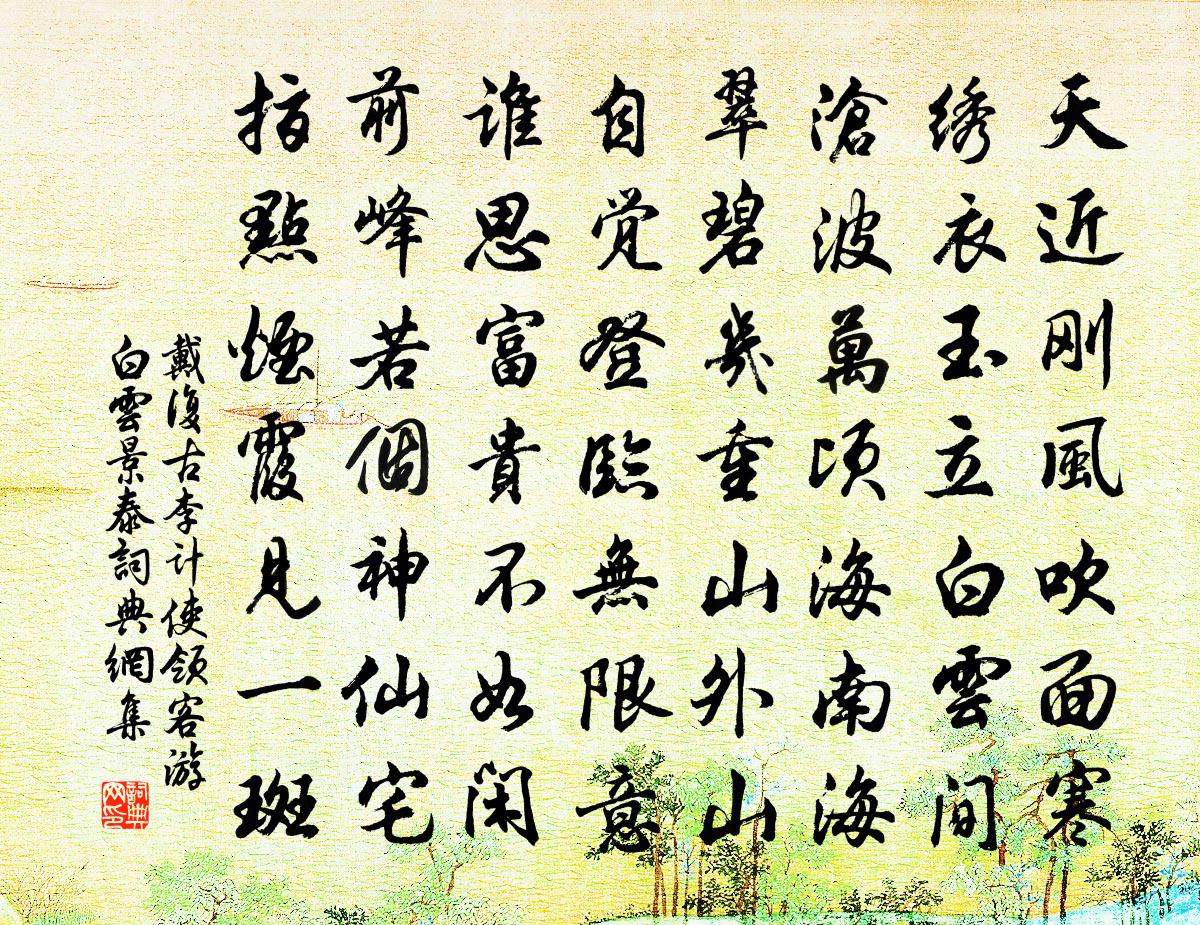 天近刚風吹面寒
绣衣玉立白雲间
滄波萬頃海南海
翠碧幾重山外山
自觉登臨無限意
谁思富貴不如闲
前峰若個神仙宅
指點煙霞見一斑
戴復古李计使領客游
白雲景泰詞典網集
詞典
网印